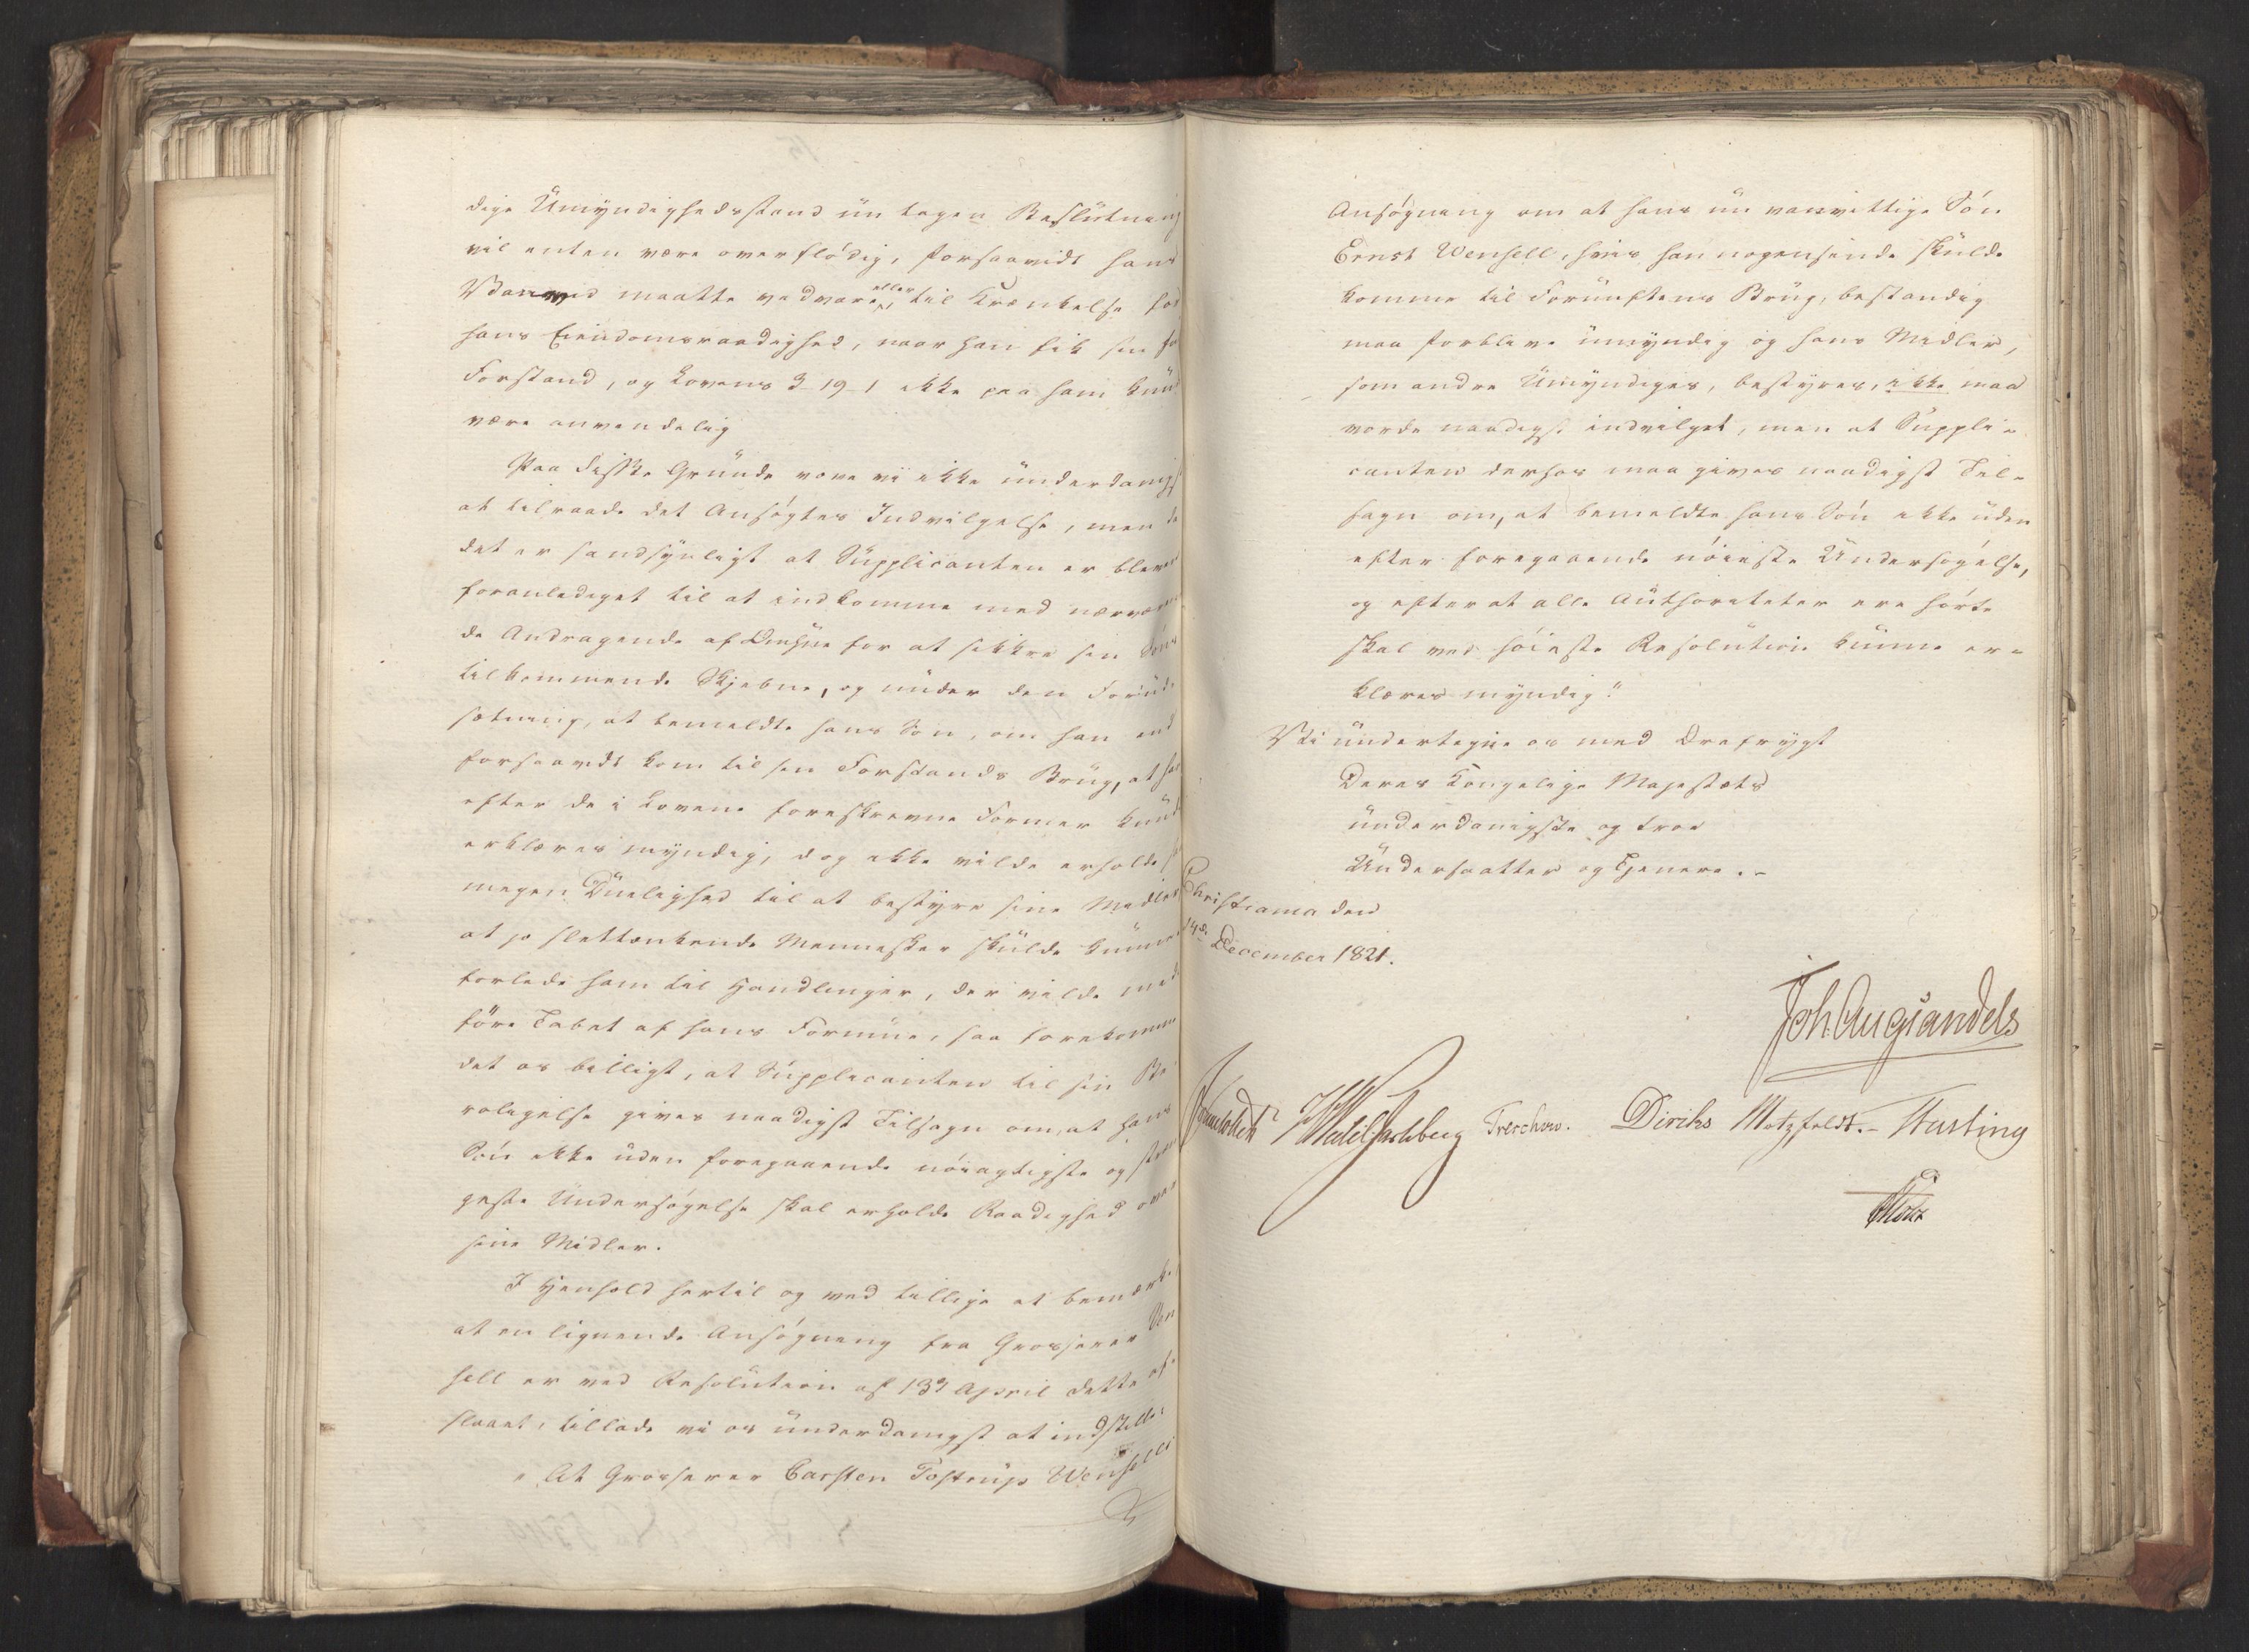 dige Umyndighedsstand nu tagen Beslutning
vil enten være overflødig, forsaavidt hans
Vanvid maatte vedvare, eller til Krænkelse for
hans Eiendomsraadighed, naar han fik sin fo
Forstand, og Lovens 3-19-1 ikke paa ham kun
være anvendelig
Paa disse Grunde vove vi ikke underdanigst
at tilraade det Ansøgtes Indvilgelse, men da
det er sandsynligt at Supplicanten er bleven
foranlediget til at indkomme med nærværen
de Andragende af Omhue for at sikkre sin Søns
tilkommende Skjebne, og under den Forud-
sætning, at bemeldte hans Søn, om han end
forsaavidt kom til sin Forstands Brug, at han
efter de i Lovene foreskrevne Former kunde
erklæres myndig, dog ikke vilde erholde saa
megen Duelighed til at bestyre sine Midler
at jo slettænkende Mennesker skulde kunne
forlede ham til Handlinger, der vilde med
føre Tabet af hans Formue, saa forekommer
det os billigt, at Supplicanten til sin Be-
rolegelse gives naadigst Tilsagn om, at hans
Søn ikke uden foregaaende nøiagtigste og stræn
geste Undersøgelse skal erholde Raadighed over
sine Midler.
I Henhold hertil og ved tillige at bemærke,
at en lignende Ansøgning fra Grosserer Wen
sell er ved Resolution af 13de April dette af-
slaaet, tillade vi os underdanigst at indstille:
"At Grosserer Carsten Tostrup Wensells
Ansøgning om at hans nu vanvittige Søn
Ernst Wensell, hvis han nogensinde skulde
komme til Fornuftens Brug, bestandig
maa forblive umyndig og hans Midler,
som andre Umyndiges, bestyres, ikke maa
vorde naadigst indvilget, men at Suppli-
canten derhos maa gives naadigst Til-
sagn om, at bemeldte hans Søn ikke uden
efter foregaaende nøieste Undersøgelse,
og efter at alle Authoriteter ere hørte
skal ved høieste Resolution kunne er-
klæres myndig."
Vi undertegne os med Ærefrygt
Deres Kongelige Majestæts
underdanigste og troe
Undersaatter og Tjenere.-
Christiania den
14de December 1821.
Joh. Aug Sandels
Sommerhielm Mathias Treschow. Diriks Motzfeldt.- Fasting